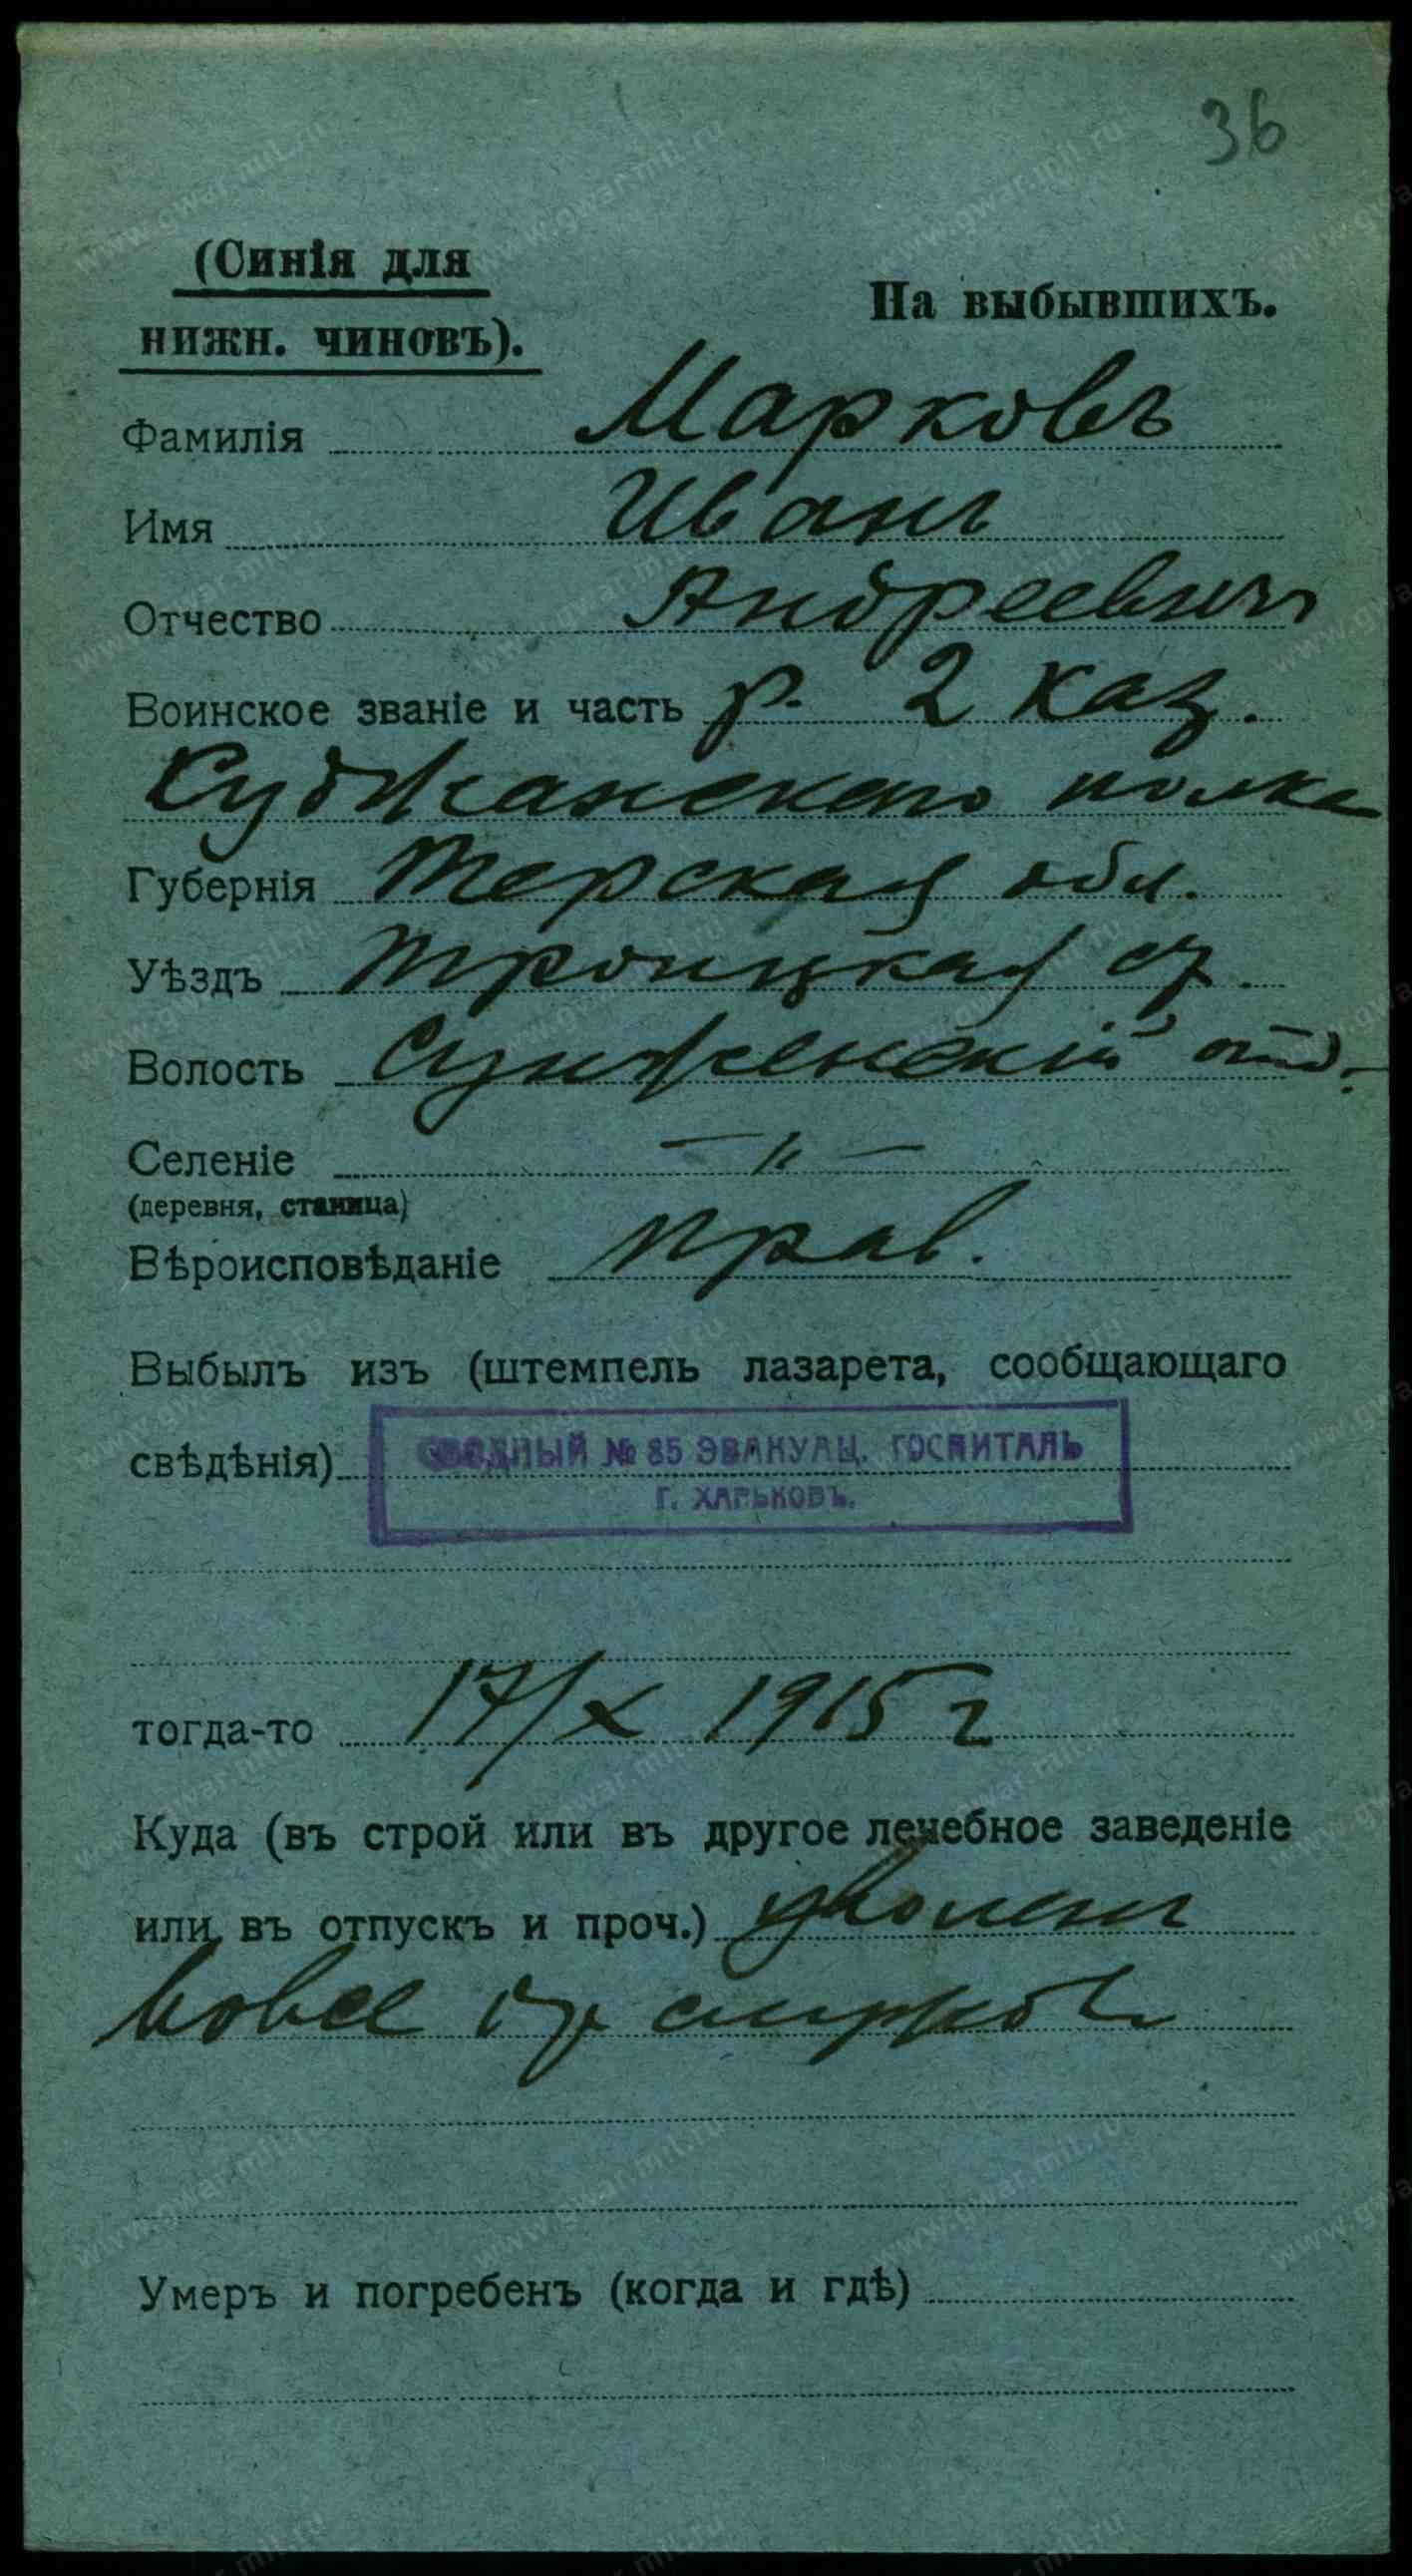 36
(Синія для
нижн. чиновъ).
На выбывшихъ.
Фамилія Марковъ
Имя Иванъ
Отчество Андреевичъ
Воинское званіе и часть р. 2 каз.
Суджанскаго полка
Губернія Терская обл.
Уѣздъ Троицкая ст.
Волость Сунженскій отд.
Селеніе — " —
(деревня, станица)
Вѣроисповѣданіе прав.
Выбылъ изъ (штемпель лазарета, сообщающаго
свѣдѣнія) СВОДНЫЙ № 85 ЭВАКУАЦ. ГОСПИТАЛЬ
Г. ХАРЬКОВЪ.
тогда-то 17/X 1915 г
Куда (въ строй или въ другое лечебное заведеніе
или въ отпускъ и проч.) уволенъ
вовсе от службы
Умеръ и погребенъ (когда и гдѣ)